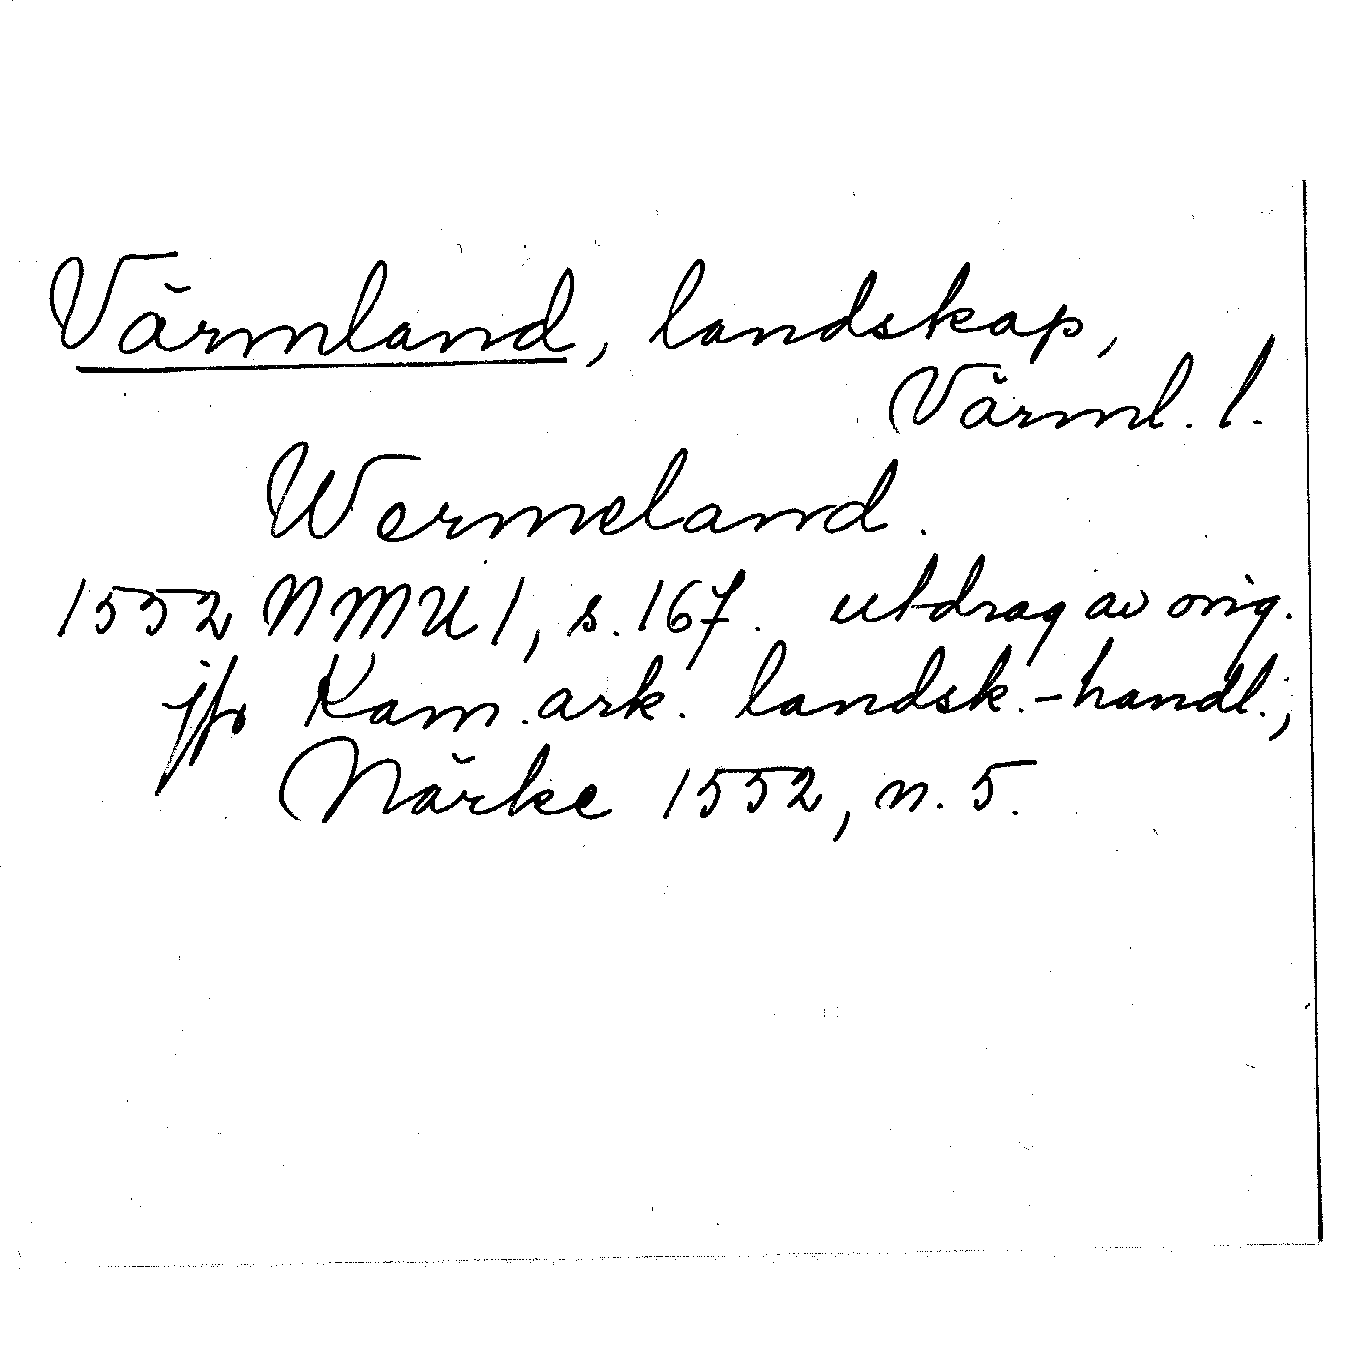 Värmland, landskap,
Värml. l.
Wermeland.
1552 NMU 1, s. 167. utdrag av orig.
jfr Kam.ark. landsk.-handl.,
Närke 1552, n. 5.